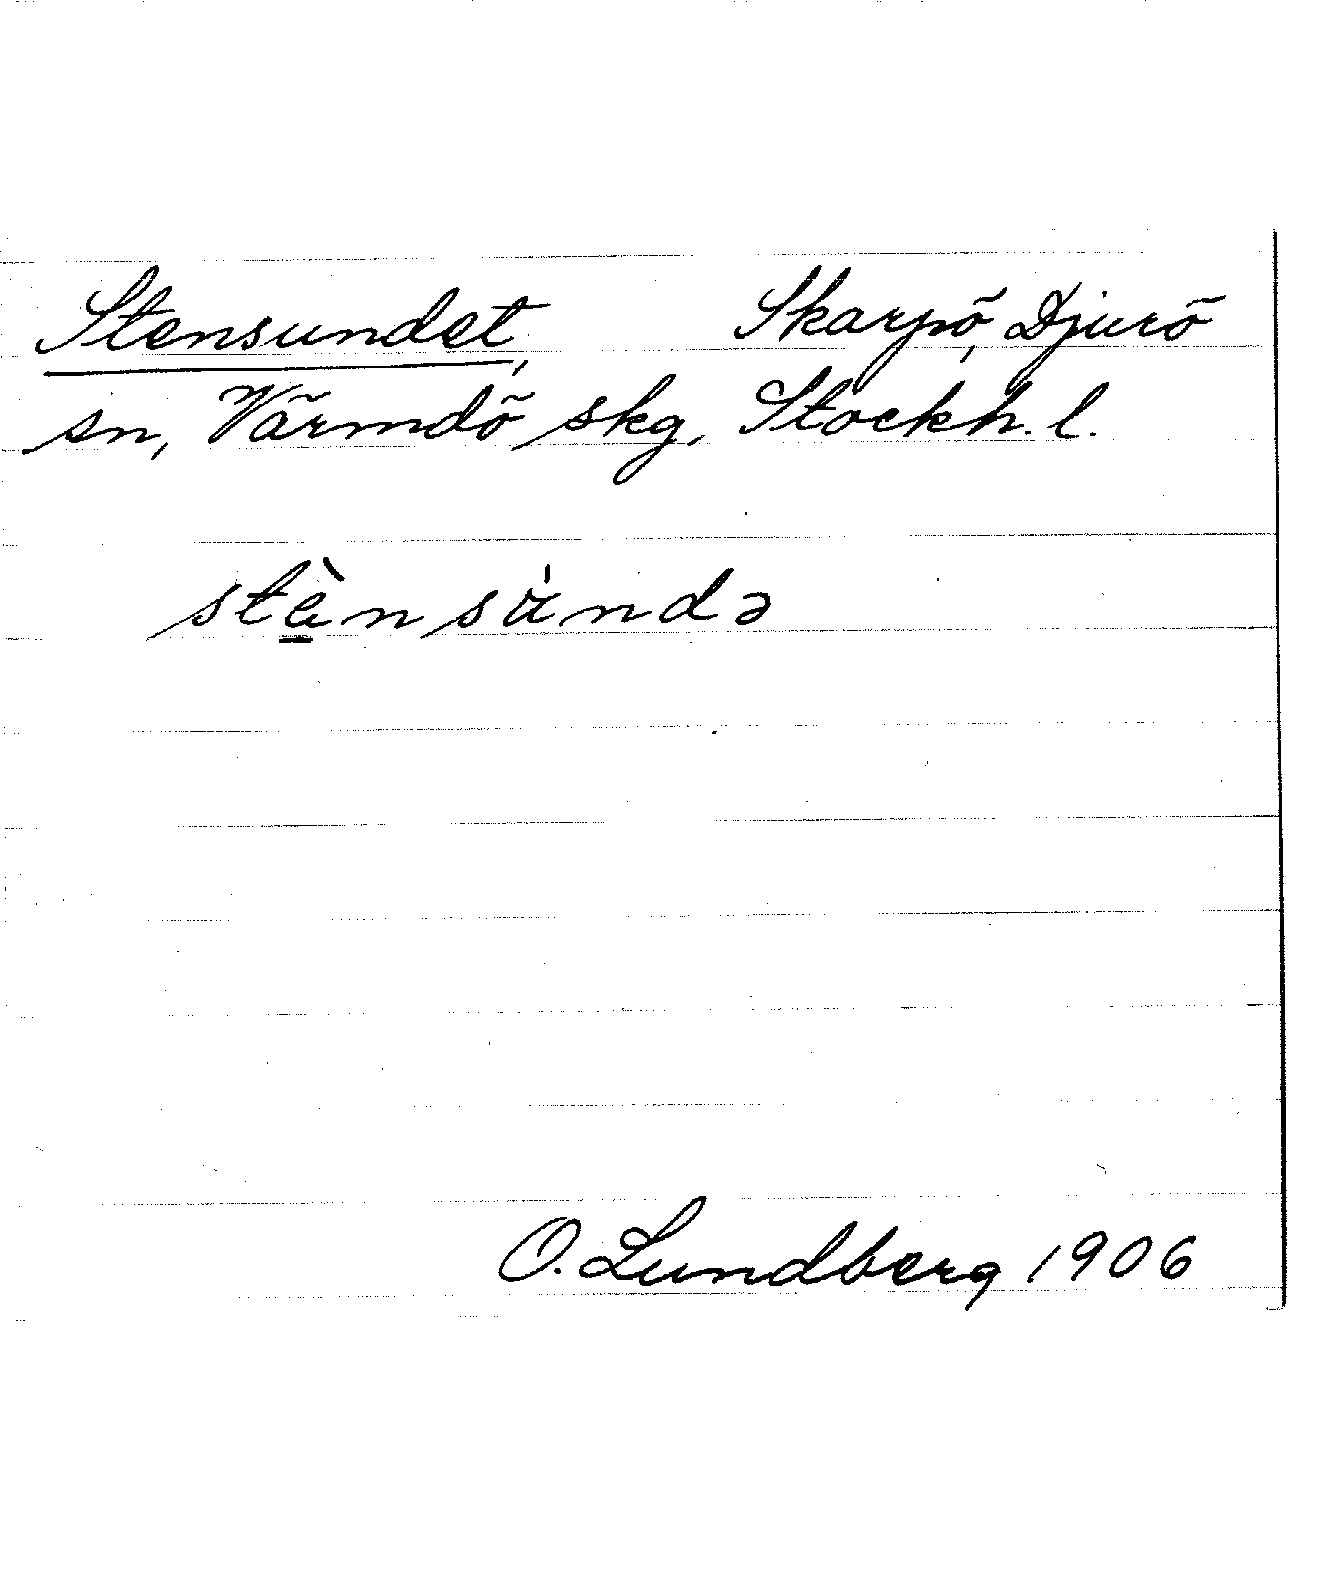 Stensundet, Skarpö, Djurö
sn, Värmdö skg, Stockh. l.
stè̠nsándə
O. Lundberg 1906